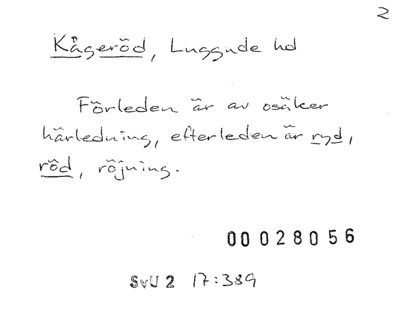 2
Kågeröd, Luggude hd
Förleden är av osäker
härledning, efterleden är ryd,
röd, röjning.
00028056
SvU 2 17:389